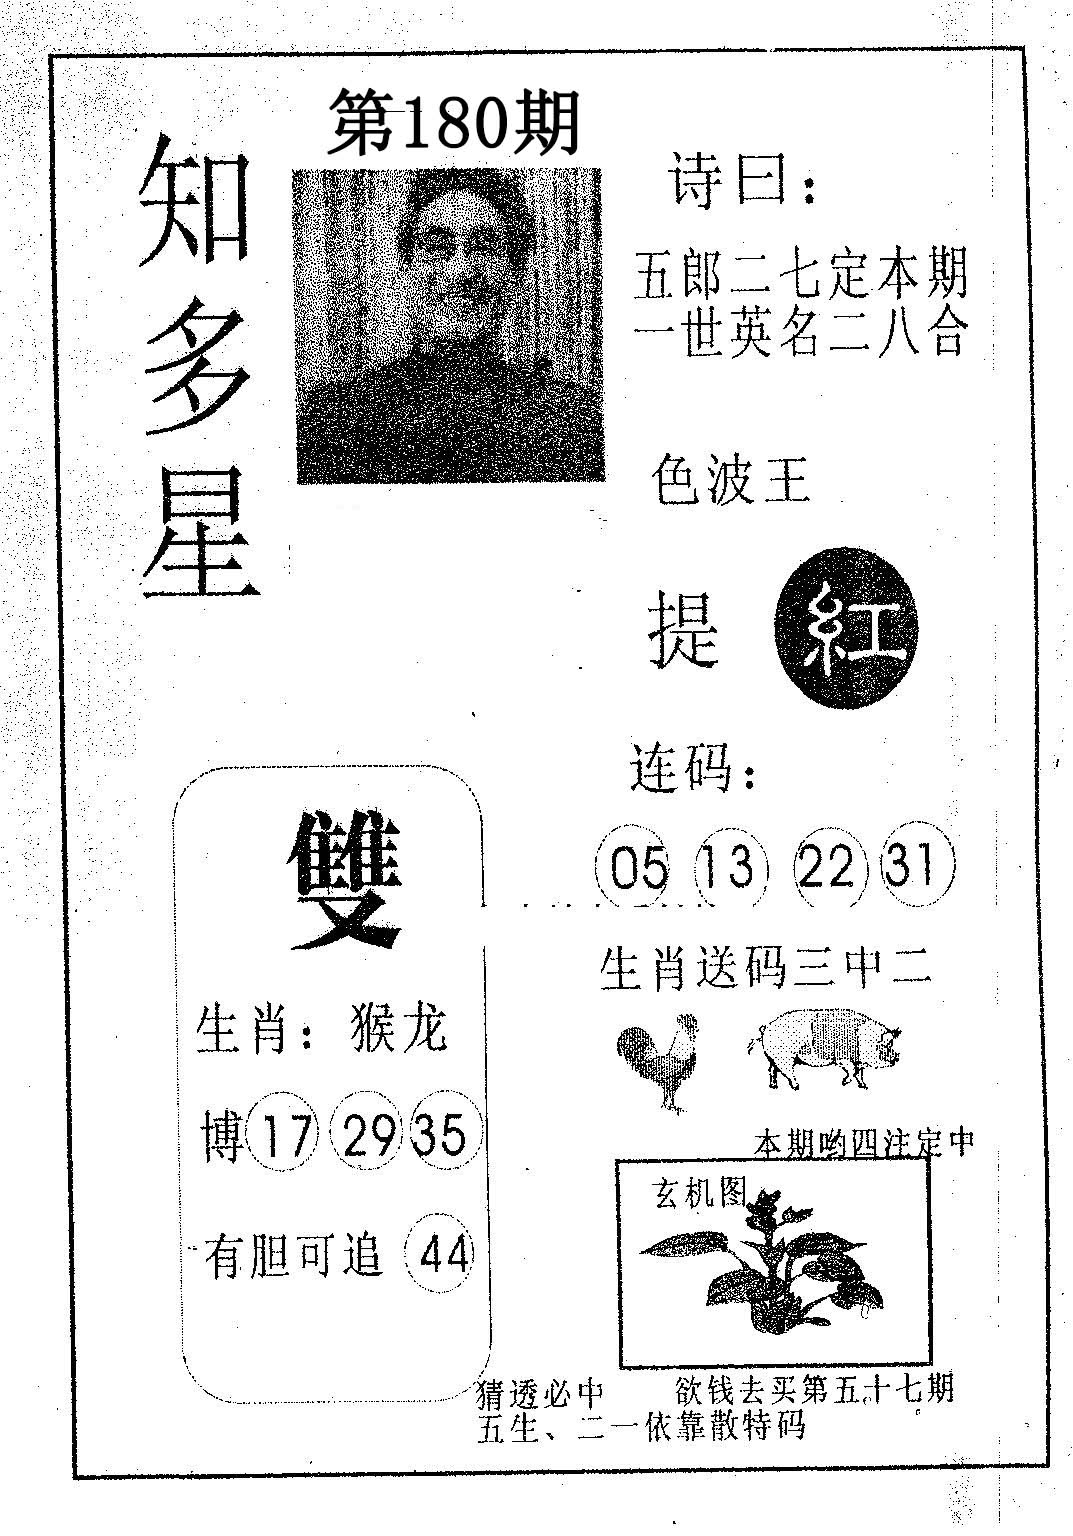 第180期
知多星
诗曰：
五郎二七定本期
一世英名二八合
色波王
提 紅
连码：
05 13 22 31
生肖送码三中二
雙
生肖：猴龙
博 17 29 35
有胆可追 44
本期哟四注定中
玄机图
猜透必中 欲钱去买第五十七期
五生、二一依靠散特码